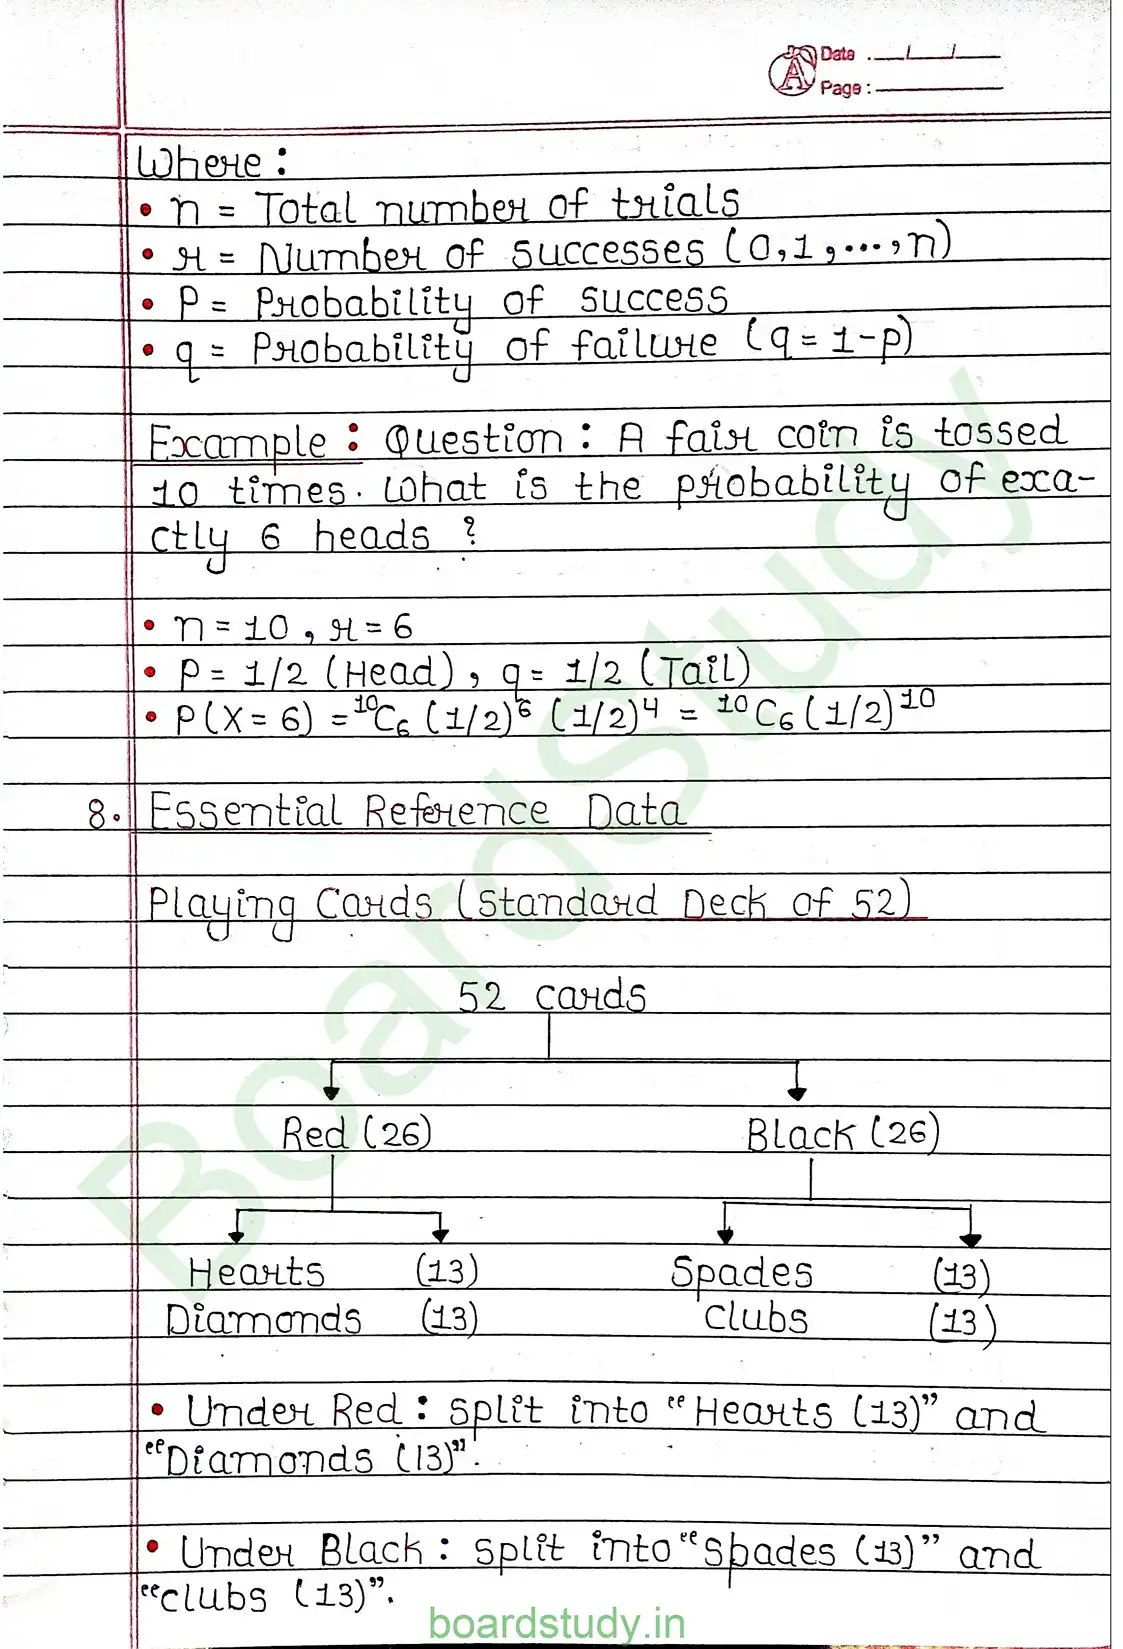 Date : __/__/__
Page :
Where :
• n = Total number of trials
• r = Number of successes (0,1,...,n)
• P = Probability of success
• q = Probability of failure (q = 1-p)
Example : Question : A fair coin is tossed
10 times. What is the probability of exa-
ctly 6 heads ?
• n = 10 , r = 6
• P = 1/2 (Head) , q = 1/2 (Tail)
• P(X = 6) = ¹⁰C₆ (1/2)⁶ (1/2)⁴ = ¹⁰C₆ (1/2)¹⁰
8. Essential Reference Data
Playing Cards (Standard Deck of 52)
52 cards
Red (26) Black (26)
Hearts (13) Spades (13)
Diamonds (13) clubs (13)
• Under Red : split into "Hearts (13)" and
"Diamonds (13)".
• Under Black : split into "Spades (13)" and
"clubs (13)".
boardstudy.in
BoardStudy